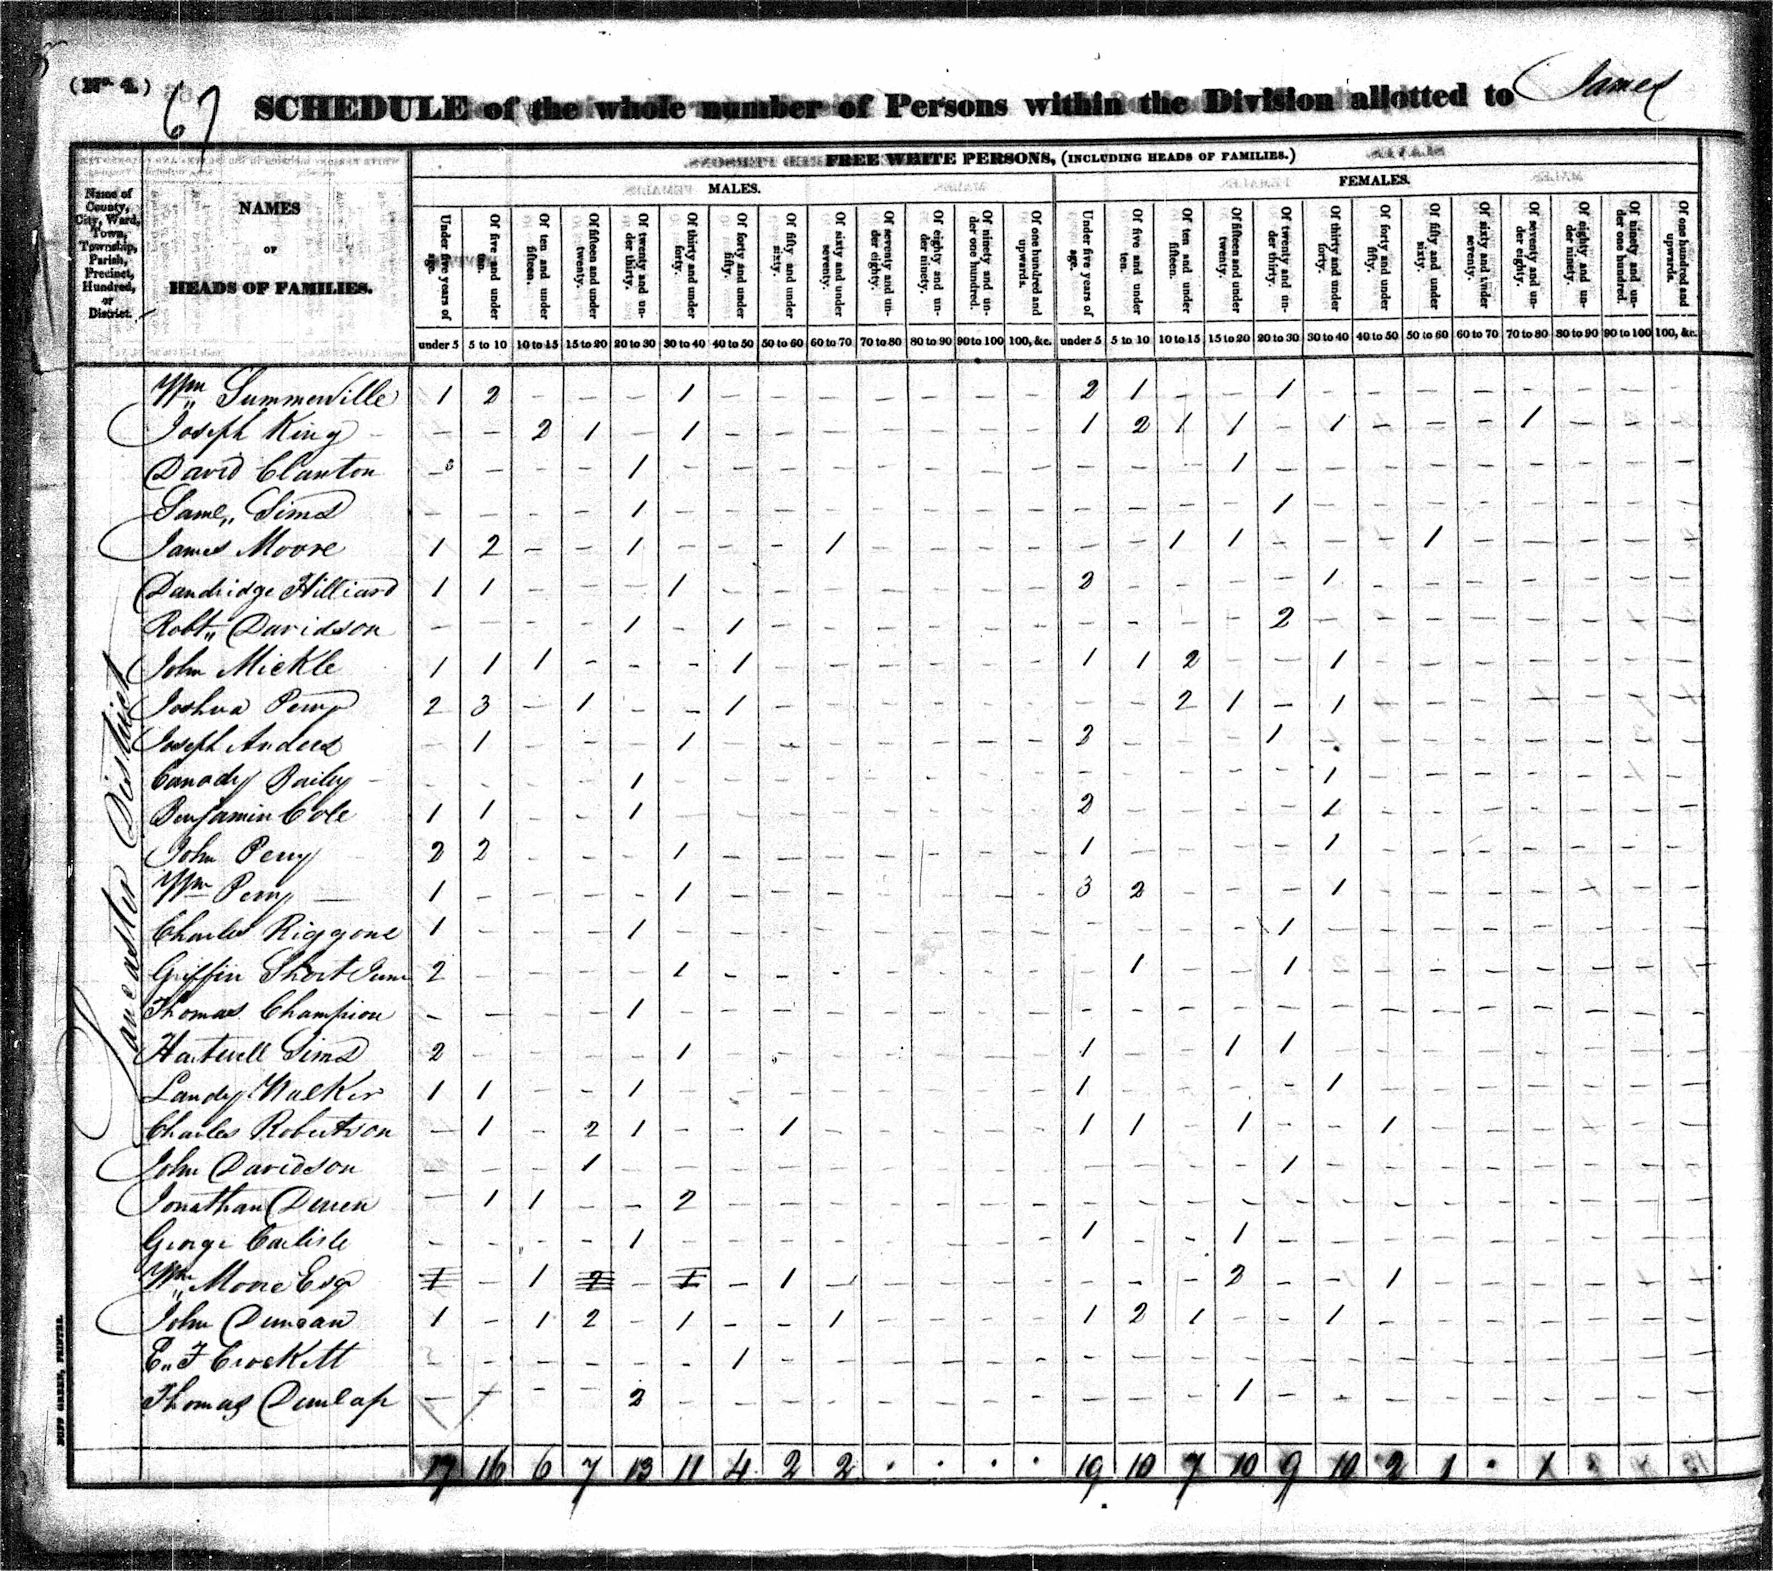 (No. 4.)
67
SCHEDULE of the whole number of Persons within the Division allotted to James
FREE WHITE PERSONS, (INCLUDING HEADS OF FAMILIES.)
MALES. FEMALES.
Name of County, City, Ward, Town, Township, Parish, Precinct, Hundred, or District.
NAMES
OF
HEADS OF FAMILIES.
Under five years of age. Of five and under ten. Of ten and under fifteen. Of fifteen and under twenty. Of twenty and under thirty. Of thirty and under forty. Of forty and under fifty. Of fifty and under sixty. Of sixty and under seventy. Of seventy and under eighty. Of eighty and under ninety. Of ninety and under one hundred. Of one hundred and upwards. Under five years of age. Of five and under ten. Of ten and under fifteen. Of fifteen and under twenty. Of twenty and under thirty. Of thirty and under forty. Of forty and under fifty. Of fifty and under sixty. Of sixty and under seventy. Of seventy and under eighty. Of eighty and under ninety. Of ninety and under one hundred. Of one hundred and upwards.
under 5 5 to 10 10 to 15 15 to 20 20 to 30 30 to 40 40 to 50 50 to 60 60 to 70 70 to 80 80 to 90 90 to 100 100, &c. under 5 5 to 10 10 to 15 15 to 20 20 to 30 30 to 40 40 to 50 50 to 60 60 to 70 70 to 80 80 to 90 90 to 100 100, &c.
Lancaster District
Wm Summerville 1 2 - - - 1 - - - - - - - 2 1 - - 1 - - - - - - - -
Joseph King - - 2 1 - 1 - - - - - - - 1 2 1 1 - 1 - - - 1 - - -
David Clanton - - - - 1 - - - - - - - - - - - 1 - - - - - - - - -
Saml Sims - - - - 1 - - - - - - - - - - - - 1 - - - - - - - -
James Moore 1 2 - - 1 - - - 1 - - - - - - 1 1 - - - 1 - - - - -
Dandridge Hilliard 1 1 - - - 1 - - - - - - - 2 - - - - 1 - - - - - - -
Robt Davidson - - - - 1 - 1 - - - - - - - - - - 2 - - - - - - - -
John Mickle 1 1 1 - - - 1 - - - - - - 1 1 2 - - 1 - - - - - - -
Joshua Perry 2 3 - 1 - - 1 - - - - - - - - 2 1 - 1 - - - - - - -
Joseph Anders - 1 - - - 1 - - - - - - - 2 - - - 1 - - - - - - - -
Canady Bailey - - - - 1 - - - - - - - - - - - - - 1 - - - - - - -
Benjamin Cole 1 1 - - 1 - - - - - - - - 2 - - - - 1 - - - - - - -
John Perry 2 2 - - - 1 - - - - - - - 1 - - - - 1 - - - - - - -
Wm Perry 1 - - - - 1 - - - - - - - 3 2 - - - 1 - - - - - - -
Charles 1 - - - 1 - - - - - - - - - - - - 1 - - - - - - - -
Griffin Short 2 - - - - 1 - - - - - - - - 1 - - 1 - - - - - - - -
Thomas Champion - - - - 1 - - - - - - - - - - - - - - - - - - - - -
Hartwell Sims 2 - - - - 1 - - - - - - - 1 - - 1 1 - - - - - - - -
Landy Walker 1 1 - - 1 - - - - - - - - 1 - - - - 1 - - - - - - -
Charles Robertson - 1 - 2 1 - - 1 - - - - - 1 1 - 1 - - 1 - - - - - -
John Davidson - - - 1 - - - - - - - - - - - - - 1 - - - - - - - -
Jonathan - 1 1 - - 2 - - - - - - - - - - - - - - - - - - - -
George Carlisle - - - - 1 - - - - - - - - 1 - - 1 - - - - - - - - -
Wm Moore Esqr 1 - 1 2 - 1 - 1 - - - - - - - - 2 - - 1 - - - - - -
John Duncan 1 - 1 2 - 1 - - 1 - - - - 1 2 1 - - 1 - - - - - - -
E. F Crockett - - - - - - 1 - - - - - - - - - - - - - - - - - - -
Thomas Dunlap - - - - 2 - - - - - - - - - - - 1 - - - - - - - - -
17 16 6 7 13 11 4 2 2 . . . . 19 10 7 10 9 10 2 1 . 1
DUFF GREEN, PRINTER.